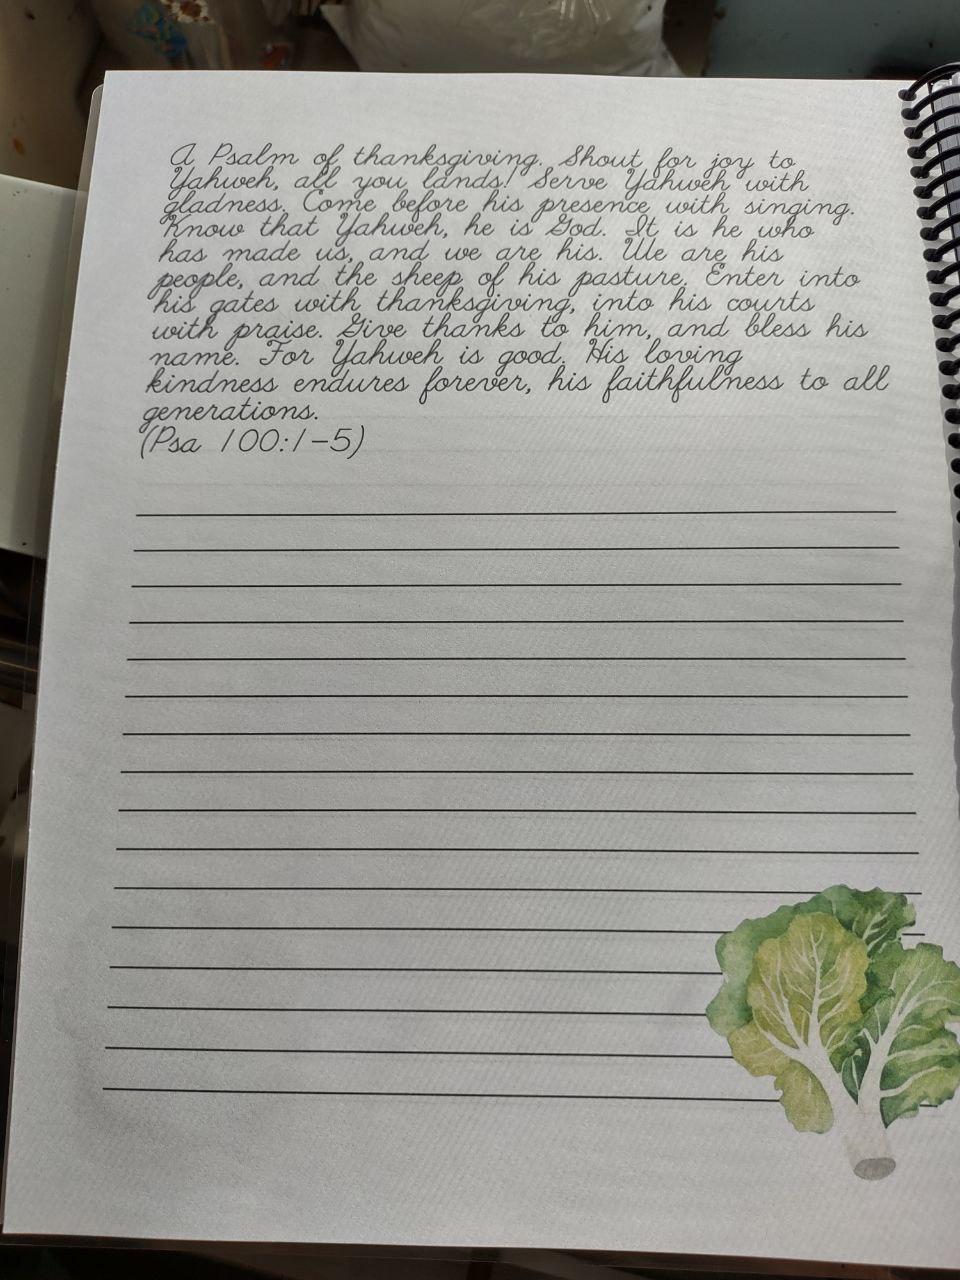 A Psalm of thanksgiving. Shout for joy to
Yahweh, all you lands! Serve Yahweh with
gladness. Come before his presence with singing.
Know that Yahweh, he is God. It is he who
has made us, and we are his. We are his
people, and the sheep of his pasture. Enter into
his gates with thanksgiving, into his courts
with praise. Give thanks to him, and bless his
name. For Yahweh is good. His loving
kindness endures forever, his faithfulness to all
generations.
(Psa 100:1-5)